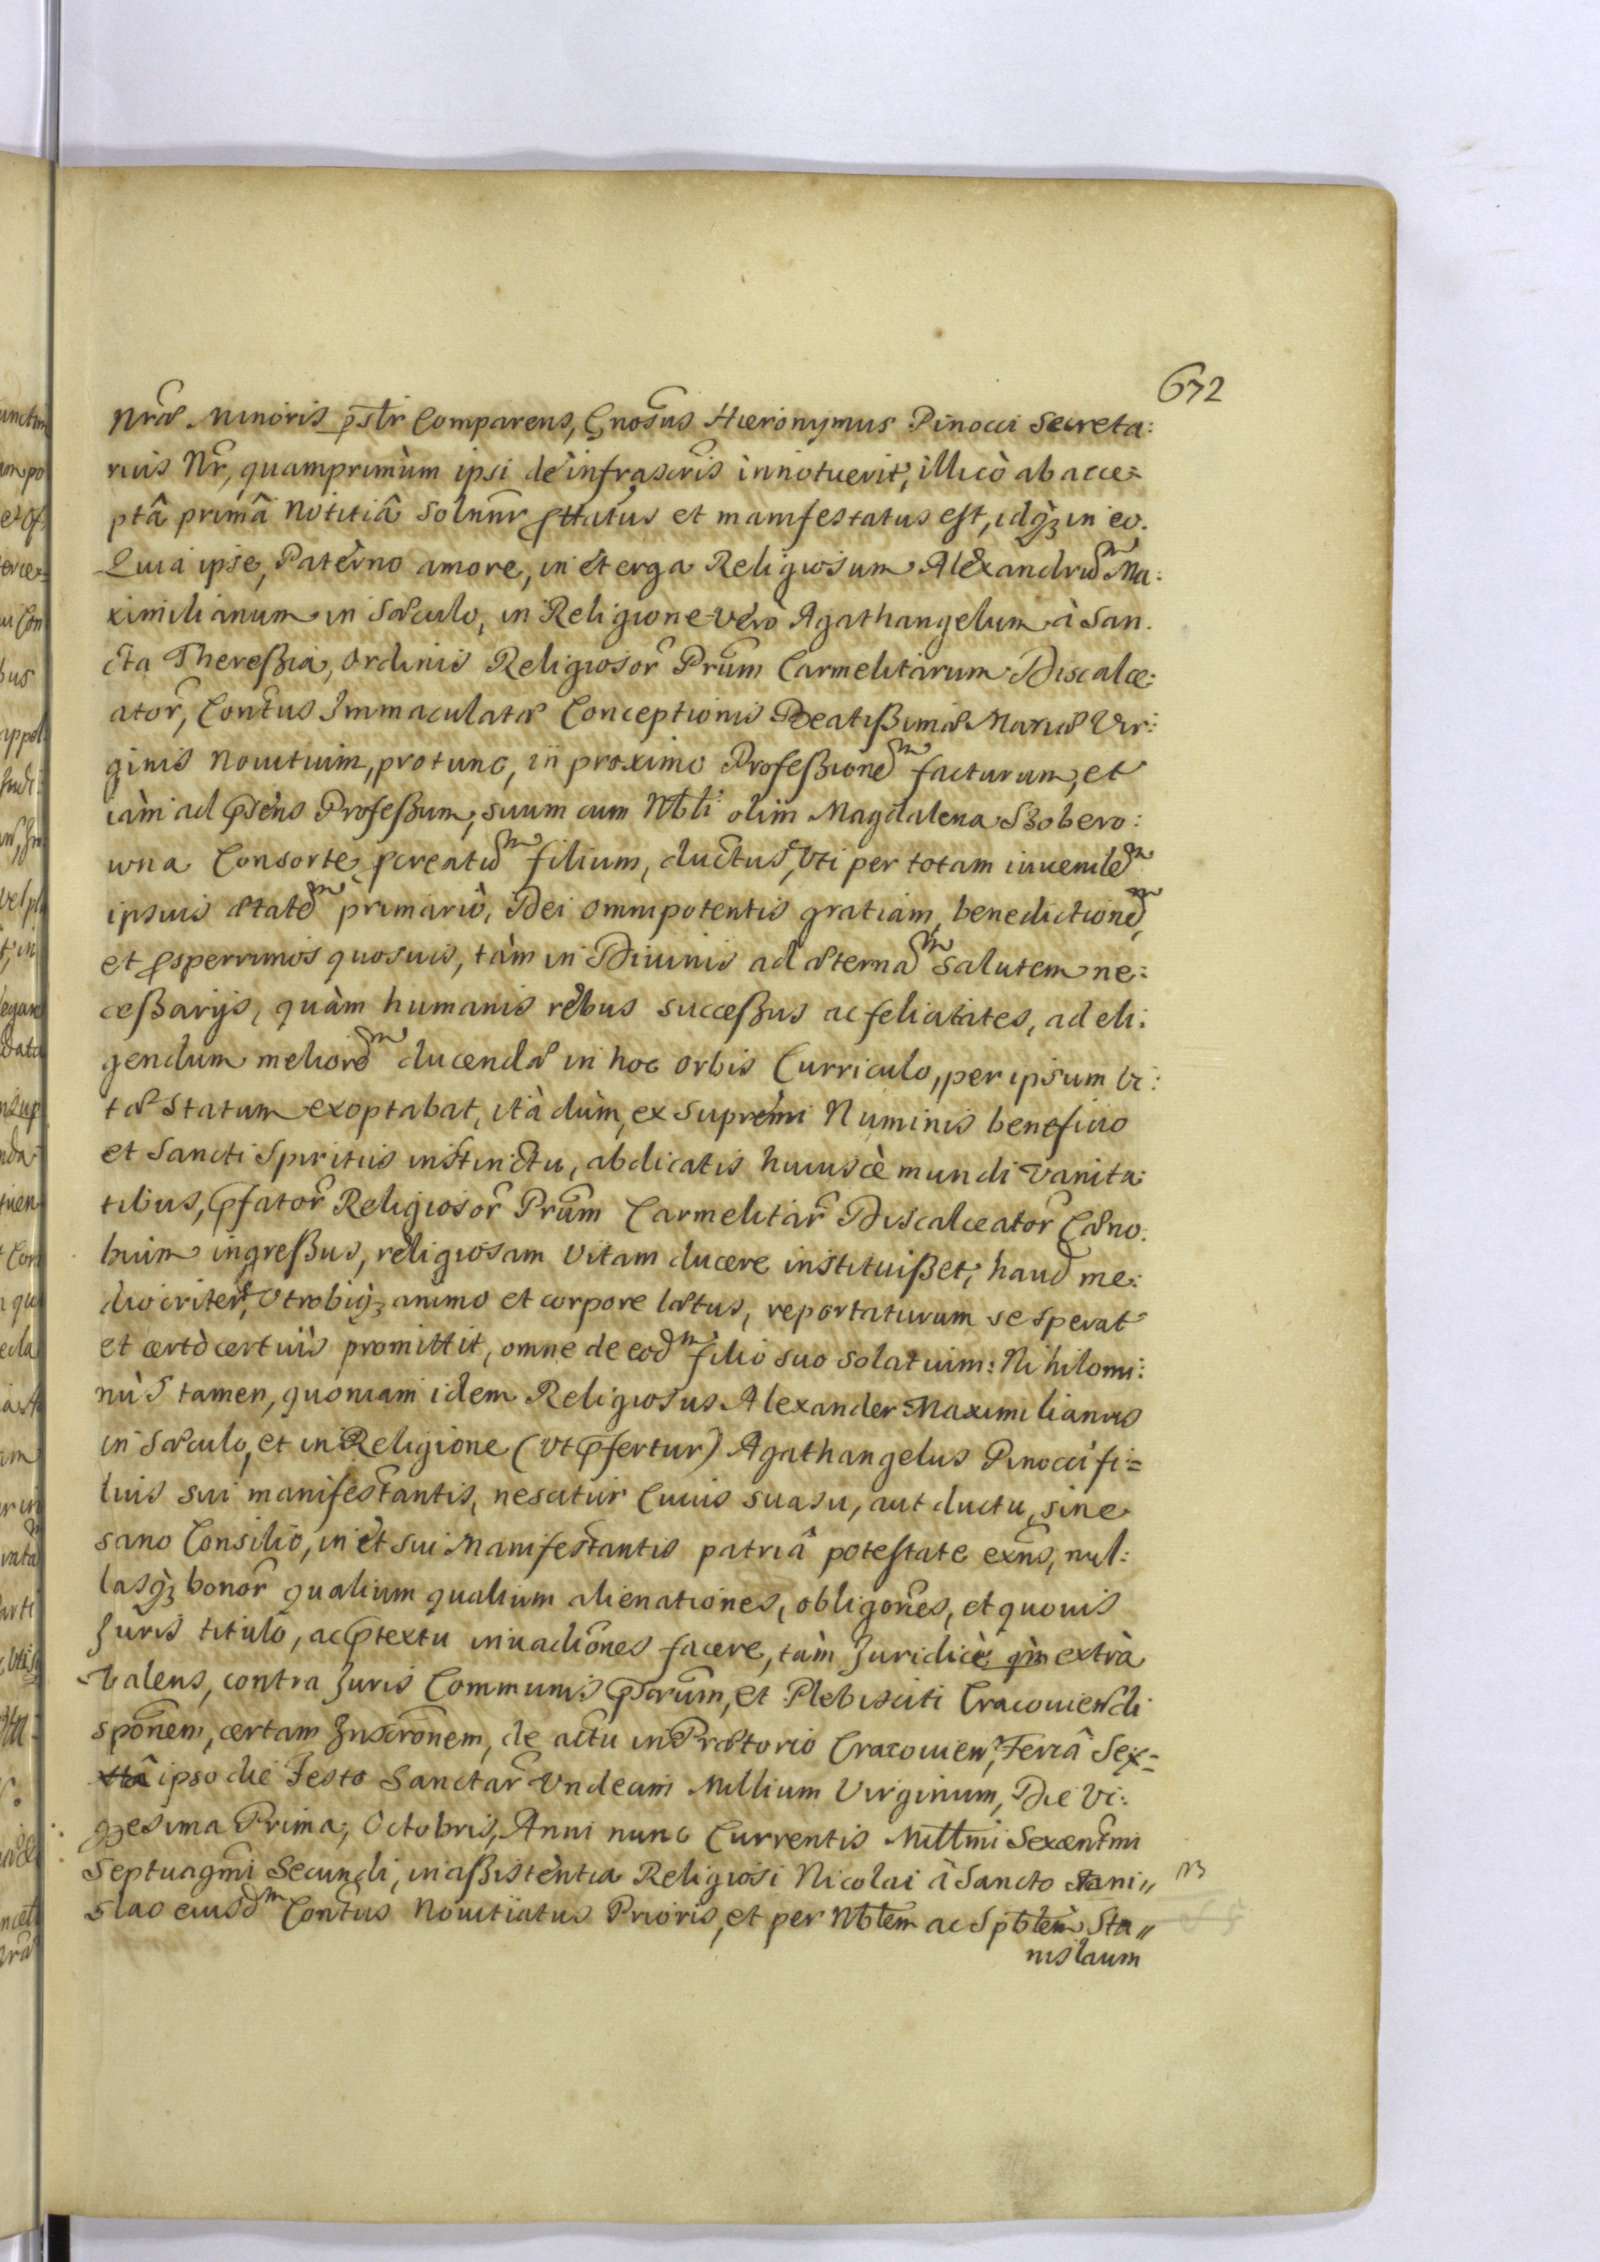 672
Nræ Minoris pstr Comparens, Gnosus Hieronymus Pinocci Secreta:
rius Nr, quamprimùm ipsi de infrascris innotuerit, illicò ab acce=
ptâ primâ Notitiâ Solnnr pttatus et manifestatus est, idq3 in eo.
Quia ipse, Paterno amore, in et erga Religiosum Alexandrum Ma:
ximilianum in Sæculo, in Religione verò Agathangelum à San.
cta Thereßia, Ordinis Religiosor Prum Carmelitarum Discalce:
ator, Contus Immaculatæ Conceptionis Beatißimæ Mariæ Vir:
ginis Nouitium, protunc, in proximo Profeßionem facturum, et
iàm ad psens Profeßum, suum cum Nbli olim Magdalena Szobero:
wna Consorte pcreatum filium, ductus, Vti per totam iuuenilem
ipsius ætatem primariò, Dei omnipotentis gratiam, benedictionem,
et psperrimos quosuis, tàm in Diuinis ad æternam salutem ne:
ceßarijs, quàm humanis rebus succeßus ac felicitates, ad eli:
gendum meliorem ducendæ in hoc orbis Curriculo, per ipsum Vi:
tæ statum exoptabat, ità dùm, ex supremi Numinis beneficio
et Sancti Spiritus instinctu, abdicatis huiuscè mundi Vanita:
tibus, pfator Religiosor Prum Carmelitar Discalceator Cæno:
bium ingreßus, religiosam Vitam ducere instituißet, haud me:
diocriter, Vtrobiq3 animo et corpore lætus, reportaturum se sperat
et certò certiùs promittit, omne de eodm filio suo solatium: Nihilomi:
nùs tamen, quoniam idem Religiosus Alexander Maximilianus
in Sæculo, et in Religione (Vt pfertur) Agathangelus Pinocci fi=
lius sui manifestantis, nescitur Cuius suasu, aut ductu, sine
sano Consilio, in et sui Manifestantis patriâ potestate exns, nul:
lasq3 bonor qualium qualium alienationes, obligones, et quouis
Juris titulo, ac ptextu inuadiones facere, tàm Juridicè qm extrà
Valens, contra Juris Communis pscrum, et Plebisciti Cracouien di
sponem, certam Inscronem, de actu in Prætorio Cracouien, Feriâ Sex=
tâ ipso die Festo Sanctar Vndecim Millium Virginum, Die Vi:
gesima Prima, Octobris, Anni nunc Currentis Millmi Sexcentmi
Septuagmi Secundi, in aßistentia Religiosi Nicolai à Sancto Stani"
slao eiusdm Contus Nouitiatus Prioris, et per Nblem ac Spblem Sta"
nislaum